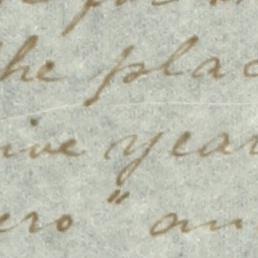 the plac
ive year
ero" an